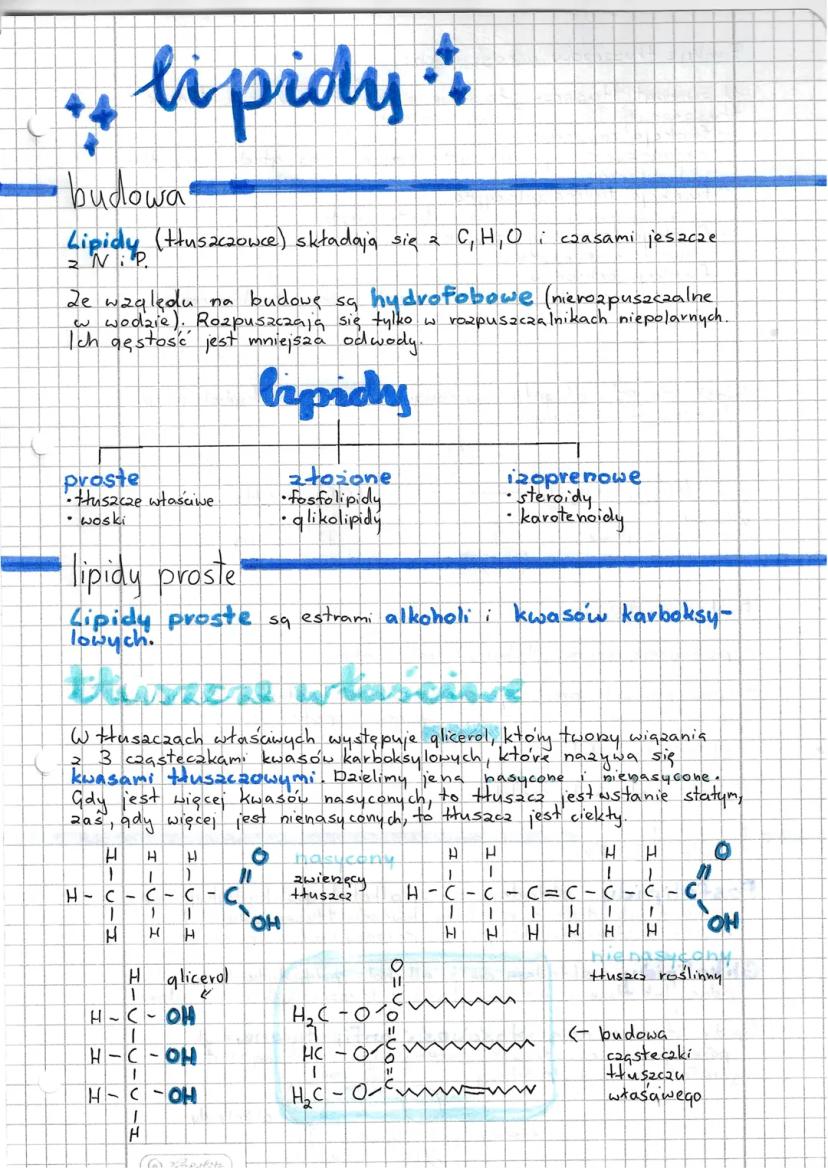 lipidy
budowa
Lipidy (tłuszczowce) składają się z C, H, O i czasami jeszcze
z N i P.
Ze względu na budowę są hydrofobowe (nierozpuszczalne
w wodzie). Rozpuszczają się tylko w rozpuszczalnikach niepolarnych.
Ich gęstość jest mniejsza od wody.
lipidy
proste złożone izoprenowe
• tłuszcze właściwe • fosfolipidy • steroidy
• woski • glikolipidy • karotenoidy
lipidy proste
Lipidy proste są estrami alkoholi i kwasów karboksy-
lowych.
tłuszcze właściwe
W tłuszczach właściwych występuje glicerol, który tworzy wiązania
z 3 cząsteczkami kwasów karboksylowych, które nazywa się
kwasami tłuszczowymi. Dzielimy je na nasycone i nienasycone.
Gdy jest więcej kwasów nasyconych, to tłuszcz jest w stanie stałym,
zaś, gdy więcej jest nienasyconych, to tłuszcz jest ciekły.
H H H O nasycony H H H H O
zwierzęcy
H - C - C - C - C tłuszcz H - C - C - C = C - C - C - C
OH OH
H H H H H H H H H
nienasycony
tłuszcz roślinny
H glicerol O
H - C - OH H₂C - O C
O
H - C - OH HC - O C
O
H - C - OH H₂C - O C
H
← budowa
cząsteczki
tłuszczu
właściwego